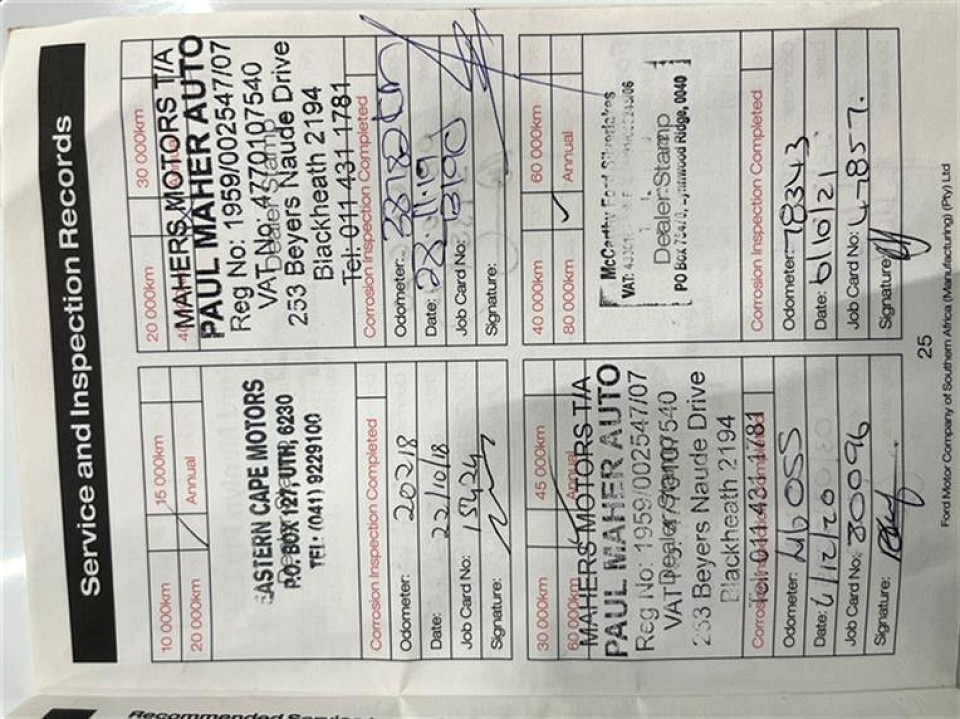 Service and Inspection Records
10 000km
15 000km
20 000km
Annual
EASTERN CAPE MOTORS
P.O. BOX 127, UTH, 6230
TEL: (041) 9229100
Corrosion Inspection Completed
Odometer: 20218
Date: 22/10/18
Job Card No: 15424
Signature:
20 000km
30 000km
MAHERS MOTORS T/A
PAUL MAHER AUTO
Reg No: 1959/002547/07
VAT No: 4770107540
Dealer Stamp
253 Beyers Naude Drive
Blackheath 2194
Tel: 011 431 1781
Corrosion Inspection Completed
Odometer:
Date:
Job Card No:
Signature:
30 000km
45 000km
60 000km
Annual
MAHERS MOTORS T/A
PAUL MAHER AUTO
Reg No: 1959/002547/07
VAT
Dealer Stamp
253 Beyers Naude Drive
Blackheath 2194
Tel: 011 431 1781
Odometer:
Date: 4/12/20
Job Card No: 300096
Signature:
40 000km
60 000km
80 000km
Annual
McCarthy Ford Silverlakes
VAT:
Dealer Stamp
PO Box
Ridge, 0040
Corrosion Inspection Completed
Odometer: 78343
Date: 6/10/21
Job Card No: 47857.
Signature:
25
Ford Motor Company of Southern Africa (Manufacturing) (Pty) Ltd